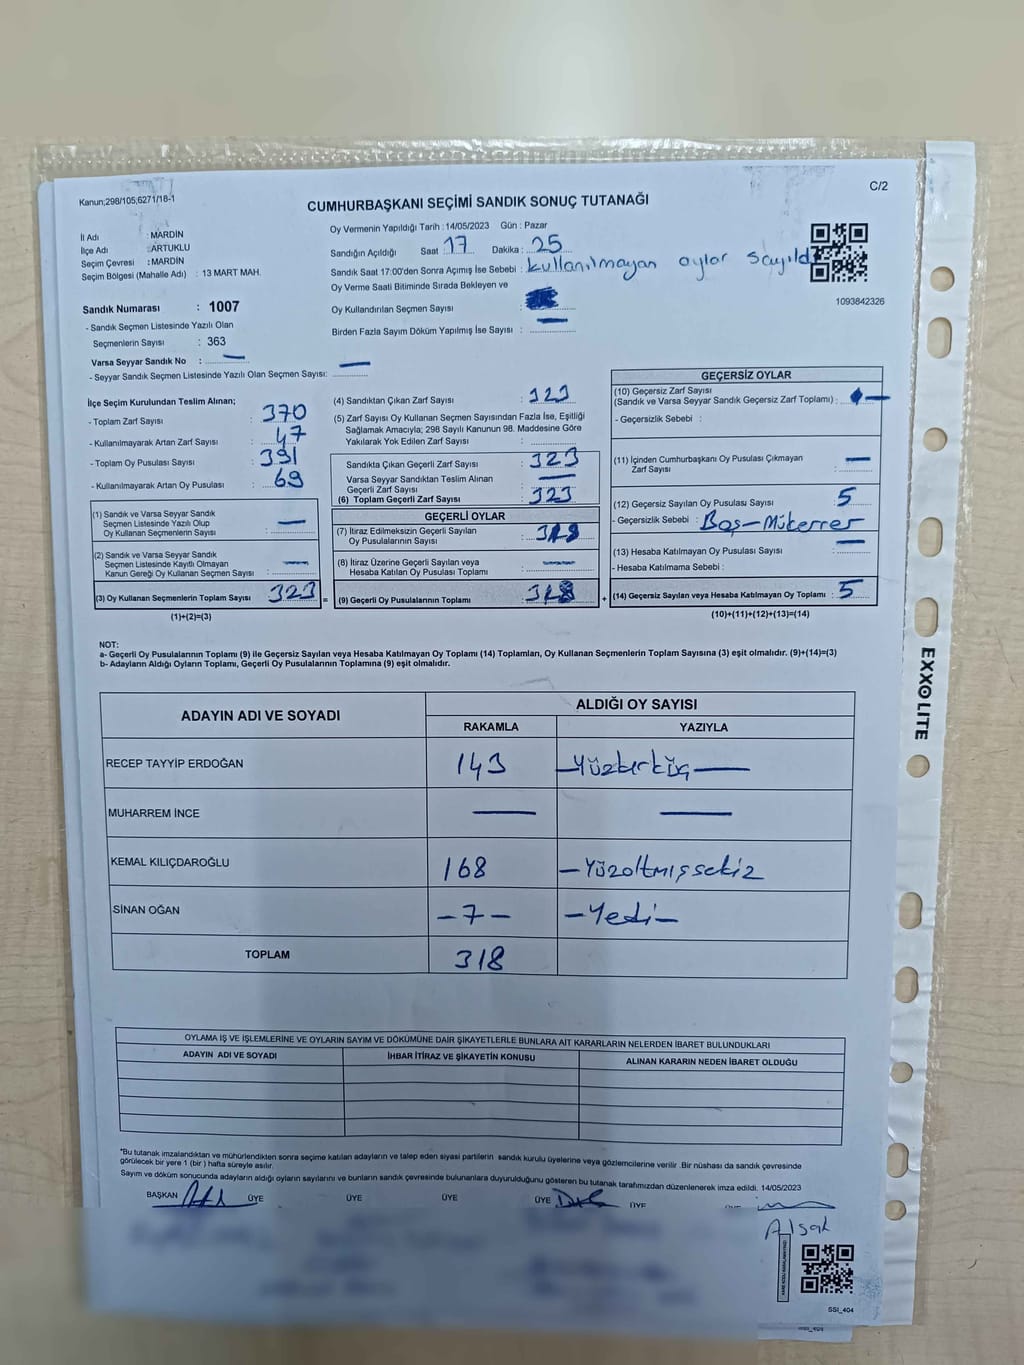 Kanun;298/105;6271/18-1
C/2
CUMHURBAŞKANI SEÇİMİ SANDIK SONUÇ TUTANAĞI
İl Adı : MARDİN
İlçe Adı : ARTUKLU
Seçim Çevresi : MARDİN
Seçim Bölgesi (Mahalle Adı) : 13 MART MAH.
Oy Vermenin Yapıldığı Tarih : 14/05/2023 Gün : Pazar
Sandığın Açıldığı Saat 17 Dakika : 25
Sandık Saat 17:00'den Sonra Açımış İse Sebebi : kullanılmayan oylar sayıldı
Oy Verme Saati Bitiminde Sırada Bekleyen ve
Oy Kullandırılan Seçmen Sayısı :
Birden Fazla Sayım Döküm Yapılmış İse Sayısı :
1093842326
Sandık Numarası : 1007
- Sandık Seçmen Listesinde Yazılı Olan
Seçmenlerin Sayısı : 363
Varsa Seyyar Sandık No : —
- Seyyar Sandık Seçmen Listesinde Yazılı Olan Seçmen Sayısı: —
İlçe Seçim Kurulundan Teslim Alınan;
- Toplam Zarf Sayısı : 370
- Kullanılmayarak Artan Zarf Sayısı : 47
- Toplam Oy Pusulası Sayısı : 391
- Kullanılmayarak Artan Oy Pusulası : 69
(1) Sandık ve Varsa Seyyar Sandık
Seçmen Listesinde Yazılı Olup
Oy Kullanan Seçmenlerin Sayısı : —
(2) Sandık ve Varsa Seyyar Sandık
Seçmen Listesinde Kayıtlı Olmayan
Kanun Gereği Oy Kullanan Seçmen Sayısı : —
(3) Oy Kullanan Seçmenlerin Toplam Sayısı : 323 =
(1)+(2)=(3)
(4) Sandıktan Çıkan Zarf Sayısı : 323
(5) Zarf Sayısı Oy Kullanan Seçmen Sayısından Fazla İse, Eşitliği
Sağlamak Amacıyla; 298 Sayılı Kanunun 98. Maddesine Göre
Yakılarak Yok Edilen Zarf Sayısı :
Sandıkta Çıkan Geçerli Zarf Sayısı : 323
Varsa Seyyar Sandıktan Teslim Alınan
Geçerli Zarf Sayısı : —
(6) Toplam Geçerli Zarf Sayısı : 323
GEÇERLİ OYLAR
(7) İtiraz Edilmeksizin Geçerli Sayılan
Oy Pusulalarının Sayısı : 318
(8) İtiraz Üzerine Geçerli Sayılan veya
Hesaba Katılan Oy Pusulası Toplamı : —
(9) Geçerli Oy Pusulalarının Toplamı : 318 +
GEÇERSİZ OYLAR
(10) Geçersiz Zarf Sayısı
(Sandık ve Varsa Seyyar Sandık Geçersiz Zarf Toplamı) : —
- Geçersizlik Sebebi :
(11) İçinden Cumhurbaşkanı Oy Pusulası Çıkmayan
Zarf Sayısı : —
(12) Geçersiz Sayılan Oy Pusulası Sayısı : 5
- Geçersizlik Sebebi : Boş-Mükerrer
(13) Hesaba Katılmayan Oy Pusulası Sayısı : —
- Hesaba Katılmama Sebebi :
(14) Geçersiz Sayılan veya Hesaba Katılmayan Oy Toplamı : 5
(10)+(11)+(12)+(13)=(14)
NOT:
a- Geçerli Oy Pusulalarının Toplamı (9) ile Geçersiz Sayılan veya Hesaba Katılmayan Oy Toplamı (14) Toplamları, Oy Kullanan Seçmenlerin Toplam Sayısına (3) eşit olmalıdır. (9)+(14)=(3)
b- Adayların Aldığı Oyların Toplamı, Geçerli Oy Pusulalarının Toplamına (9) eşit olmalıdır.
ADAYIN ADI VE SOYADI
ALDIĞI OY SAYISI
RAKAMLA YAZIYLA
RECEP TAYYİP ERDOĞAN 143
MUHARREM İNCE — —
KEMAL KILIÇDAROĞLU 168 -Yüzaltmışsekiz
SİNAN OĞAN -7- -Yedi-
TOPLAM 318
OYLAMA İŞ VE İŞLEMLERİNE VE OYLARIN SAYIM VE DÖKÜMÜNE DAİR ŞİKAYETLERLE BUNLARA AİT KARARLARIN NELERDEN İBARET BULUNDUKLARI
ADAYIN ADI VE SOYADI İHBAR İTİRAZ VE ŞİKAYETİN KONUSU ALINAN KARARIN NEDEN İBARET OLDUĞU
*Bu tutanak imzalandıktan ve mühürlendikten sonra seçime katılan adayların ve talep eden siyasi partilerin sandık kurulu üyelerine veya gözlemcilerine verilir .Bir nüshası da sandık çevresinde
görülecek bir yere 1 (bir ) hafta süreyle asılır.
Sayım ve döküm sonucunda adayların aldığı oyların sayılarını ve bunların sandık çevresinde bulunanlara duyurulduğunu gösteren bu tutanak tarafımızdan düzenlenerek imza edildi. 14/05/2023
BAŞKAN ÜYE ÜYE ÜYE ÜYE ÜYE
SSI_404
EXXOLITE